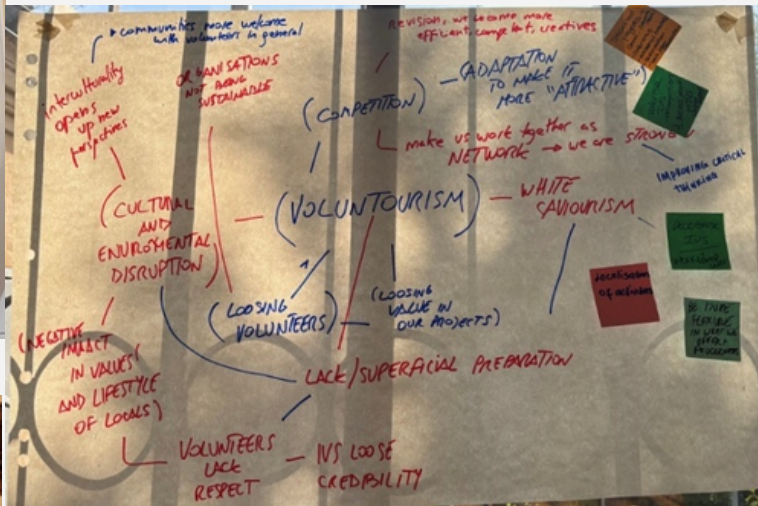 communities more welcome
with volunteers in general
Revision, we become more
efficient, competent, creatives
interculturality
opens
up new
perspectives
ORGANISATIONS
NOT BEING
SUSTAINABLE
(COMPETITION)
(ADAPTATION
TO MAKE IT
MORE "ATTRACTIVE")
make us work together as
NETWORK → we are STRONG
IMPROVING CRITICAL
THINKING
(CULTURAL
AND
ENVIROMENTAL
DISRUPTION)
(VOLUNTOURISM)
WHITE
SAVIOURISM
(LOOSING
VOLUNTEERS)
(LOOSING
VALUE IN
OUR PROJECTS)
of activities
(NEGATIVE
IMPACT
IN VALUES
AND LIFESTYLE
OF LOCALS)
LACK/SUPERFICIAL PREPARATION
VOLUNTEERS
LACK
RESPECT
IVS LOOSE
CREDIBILITY
IVS
BE MORE
FLEXIBLE